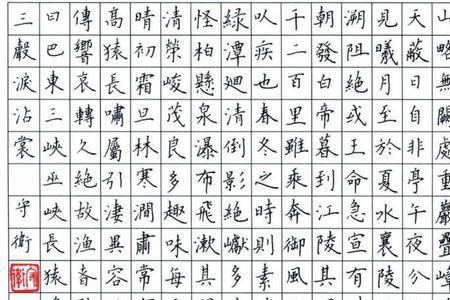 山略無闕處重巖疊
天蔽日自非亭午夜分
見曦月至於夏水襄陵
溯阻絕或王命急宣有
朝發白帝暮到江陵其
千二百里雖乘奔御風
以疾也春冬之時則素
綠潭迴清倒影絕巘多
怪柏懸泉瀑布飛漱其
清榮峻茂良多趣味每
晴初霜旦林寒澗肅常
高猿長嘯屬引淒異容
傳響哀轉久絕故漁舂
曰巴東三峽巫峽長猿
三聲淚沾裳 守衛